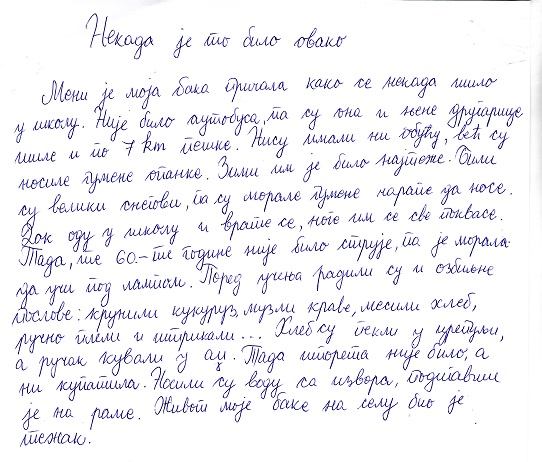 Некада је то било овако
Мени је моја бака причала како се некада ишло
у школу. Није било аутобуса, па су она и њене другарице
ишле и по 7 km пешке. Нису имали ни обућу, већ су
носиле гумене опанке. Зими им је било најтеже. Били
су велики снегови, па су морале гумене чарапе да носе.
Док оду у школу и врате се, ноге им се све поквасе.
Тада, те 60.-те године није било струје, па је морала
да учи под лампом. Поред учења радили су и озбиљне
послове: крунили кукуруз, музли краве, месили хлеб,
ручно плели и штрикали... Хлеб су пекли у црепуљи,
а ручак кували у Тада шпорета није било, а
ни купатила. Носили су воду са извора, подметавши
је на раме. Живот моје баке на селу био је
тежак.